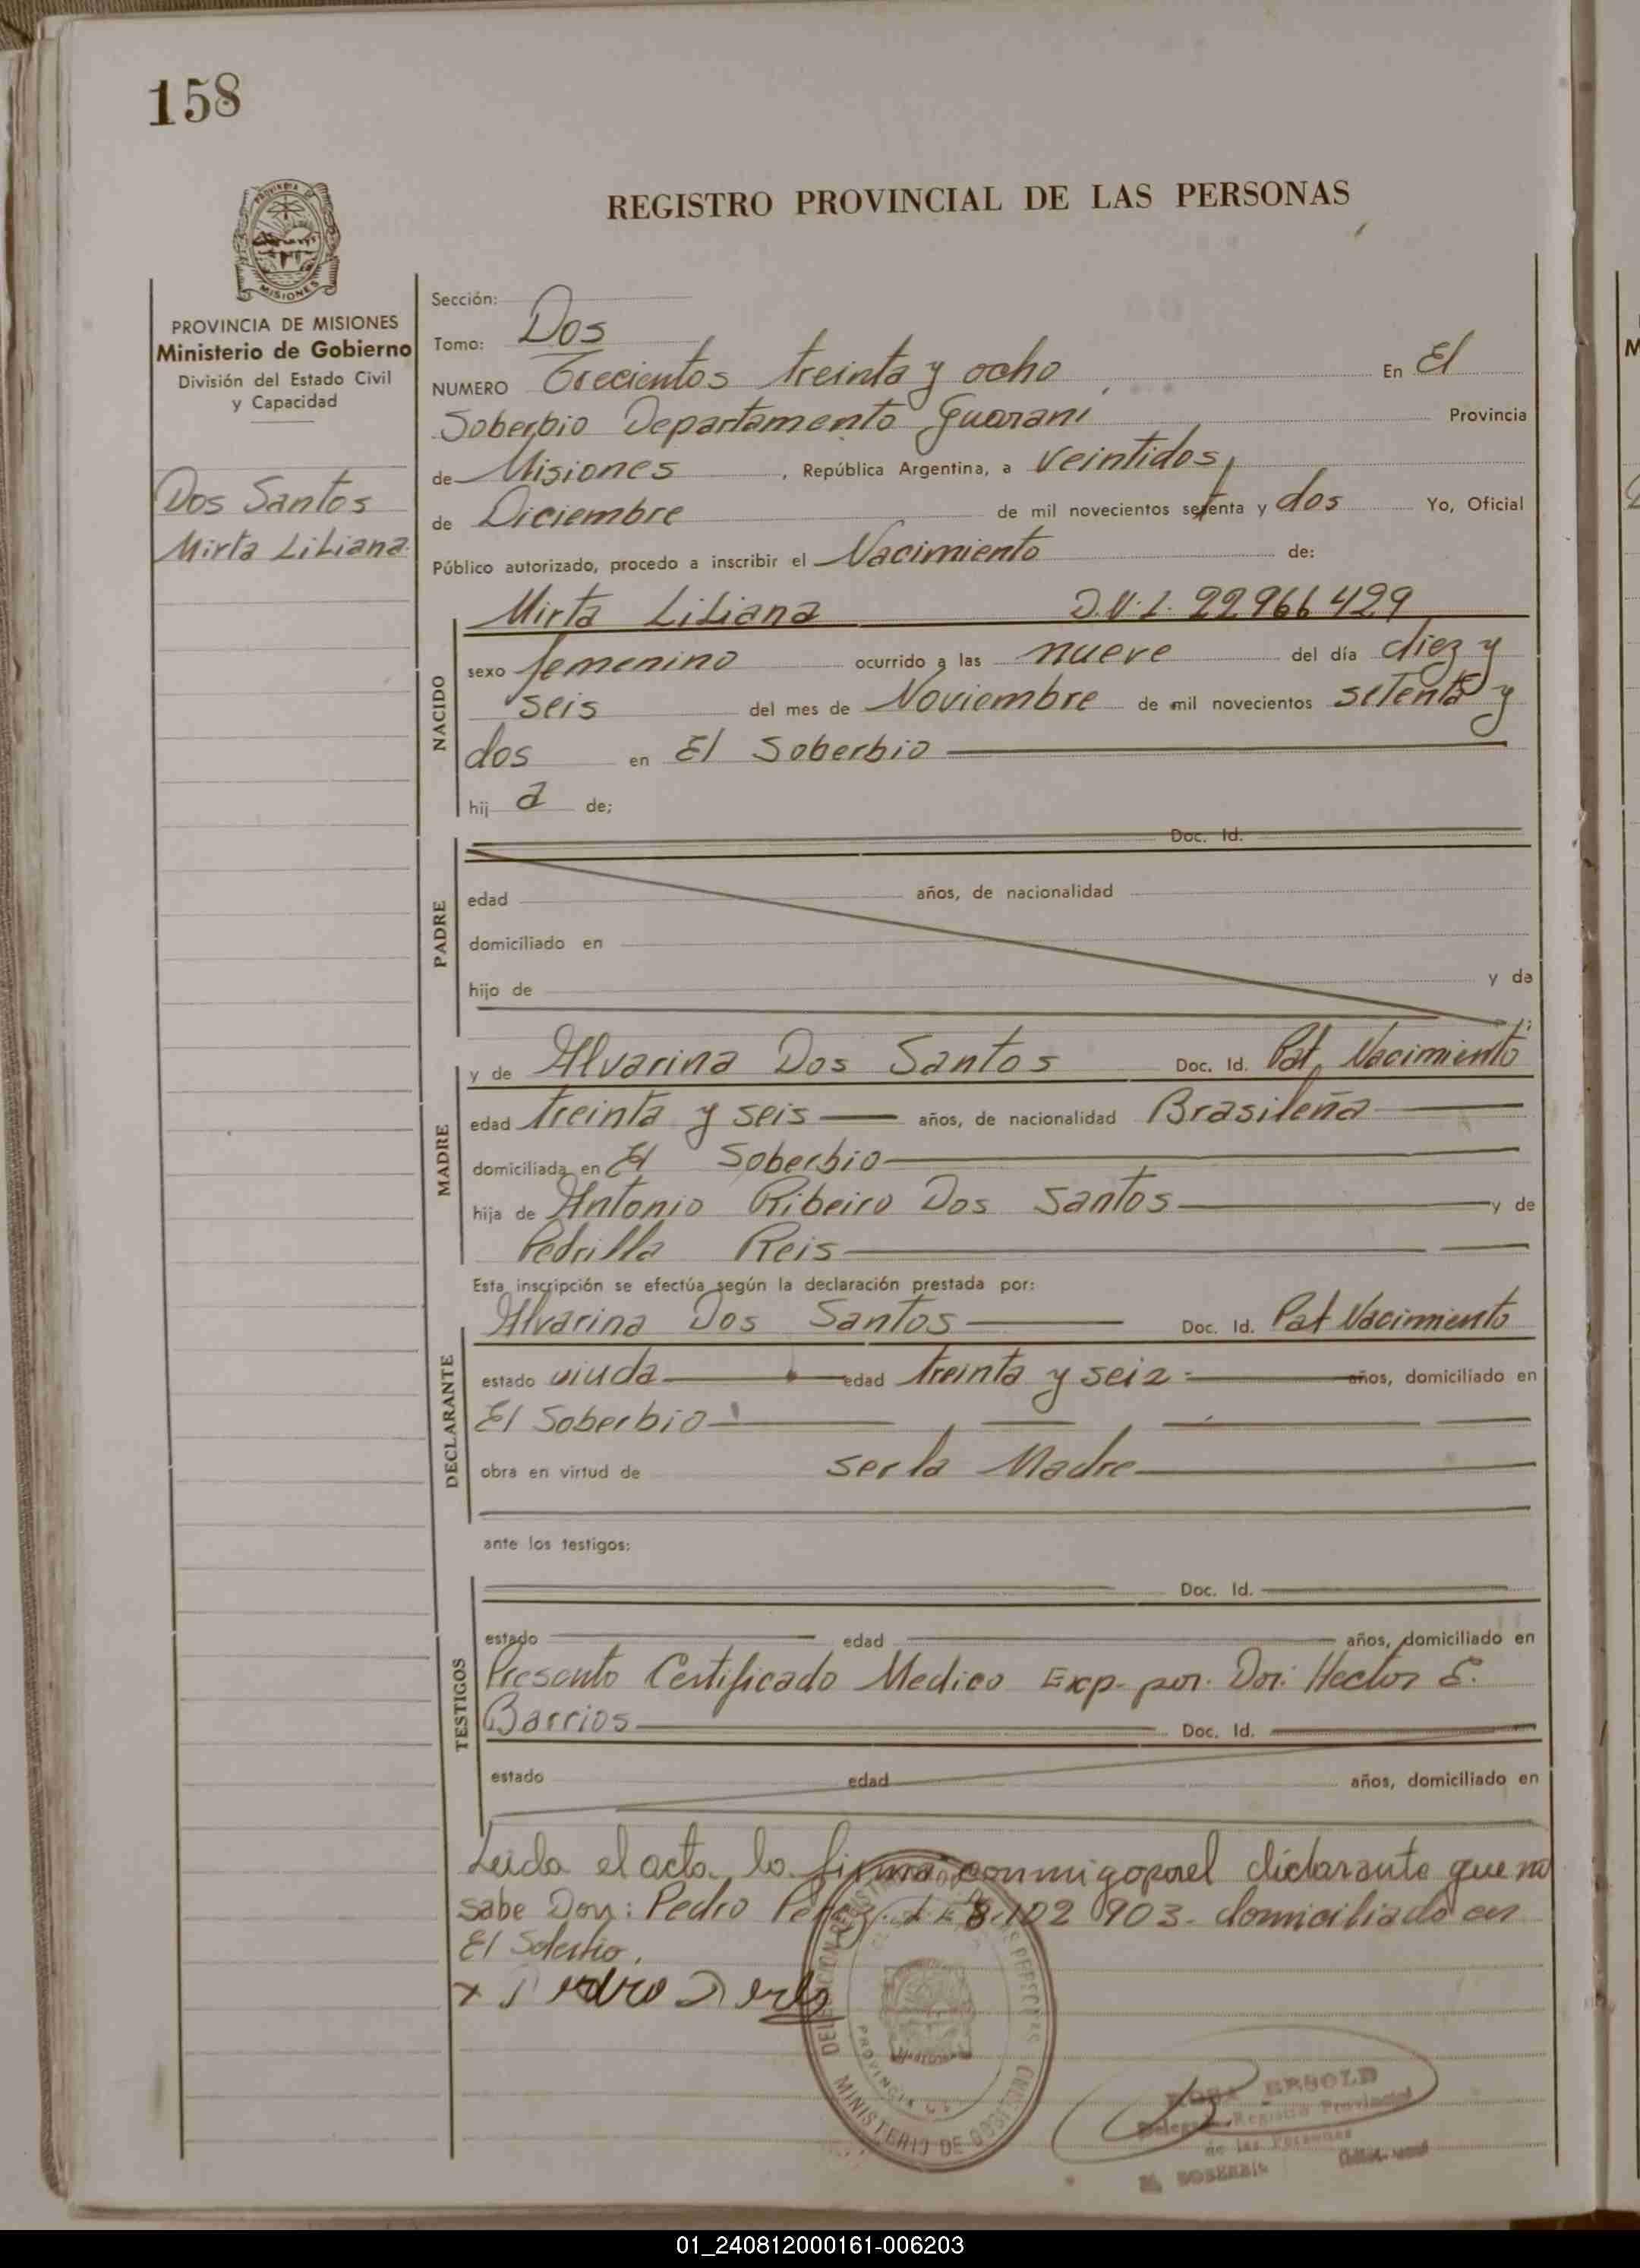 158
REGISTRO PROVINCIAL DE LAS PERSONAS
PROVINCIA DE MISIONES
Ministerio de Gobierno
División del Estado Civil
y Capacidad
Dos Santos
Mirta Liliana
Sección:
Tomo: Dos
NUMERO Trecientos treinta y ocho En El
Soberbio Departamento Guarani Provincia
de Misiones, República Argentina, a veintidos
de Diciembre de mil novecientos setenta y dos Yo, Oficial
Público autorizado, procedo a inscribir el Nacimiento de:
NACIDO
Mirta Liliana D.N.I. 22966429
sexo femenino ocurrido a las nueve del día diez y
seis del mes de Noviembre de mil novecientos setenta y
dos en El Soberbio
hij a de;
PADRE
Doc. Id.
edad años, de nacionalidad
domiciliado en
hijo de y de
MADRE
y de Alvarina Dos Santos Doc. Id. Pat. Nacimiento
edad treinta y seis años, de nacionalidad Brasileña
domiciliada en El Soberbio
hija de Antonio Ribeiro Dos Santos y de
Pedrilla Reis
Esta inscripción se efectúa según la declaración prestada por:
DECLARANTE
Alvarina Dos Santos Doc. Id. Pat Nacimiento
estado viuda edad treinta y seis años, domiciliado en
El Soberbio
obra en virtud de ser la Madre
ante los testigos:
TESTIGOS
Doc. Id.
estado edad años, domiciliado en
Presento Certificado Medico Exp. por. Dor: Hector S.
Barrios Doc. Id.
estado edad años, domiciliado en
Leida el acta la firma conmigo por el declarante que no
sabe Don: Pedro L E 8.102 903. domiciliado en
El Soberbio.
x Pedro
MINISTERIO DE
PROVINCIA
Registro Provincial
de las Personas
EL SOBERBIO
01_240812000161-006203